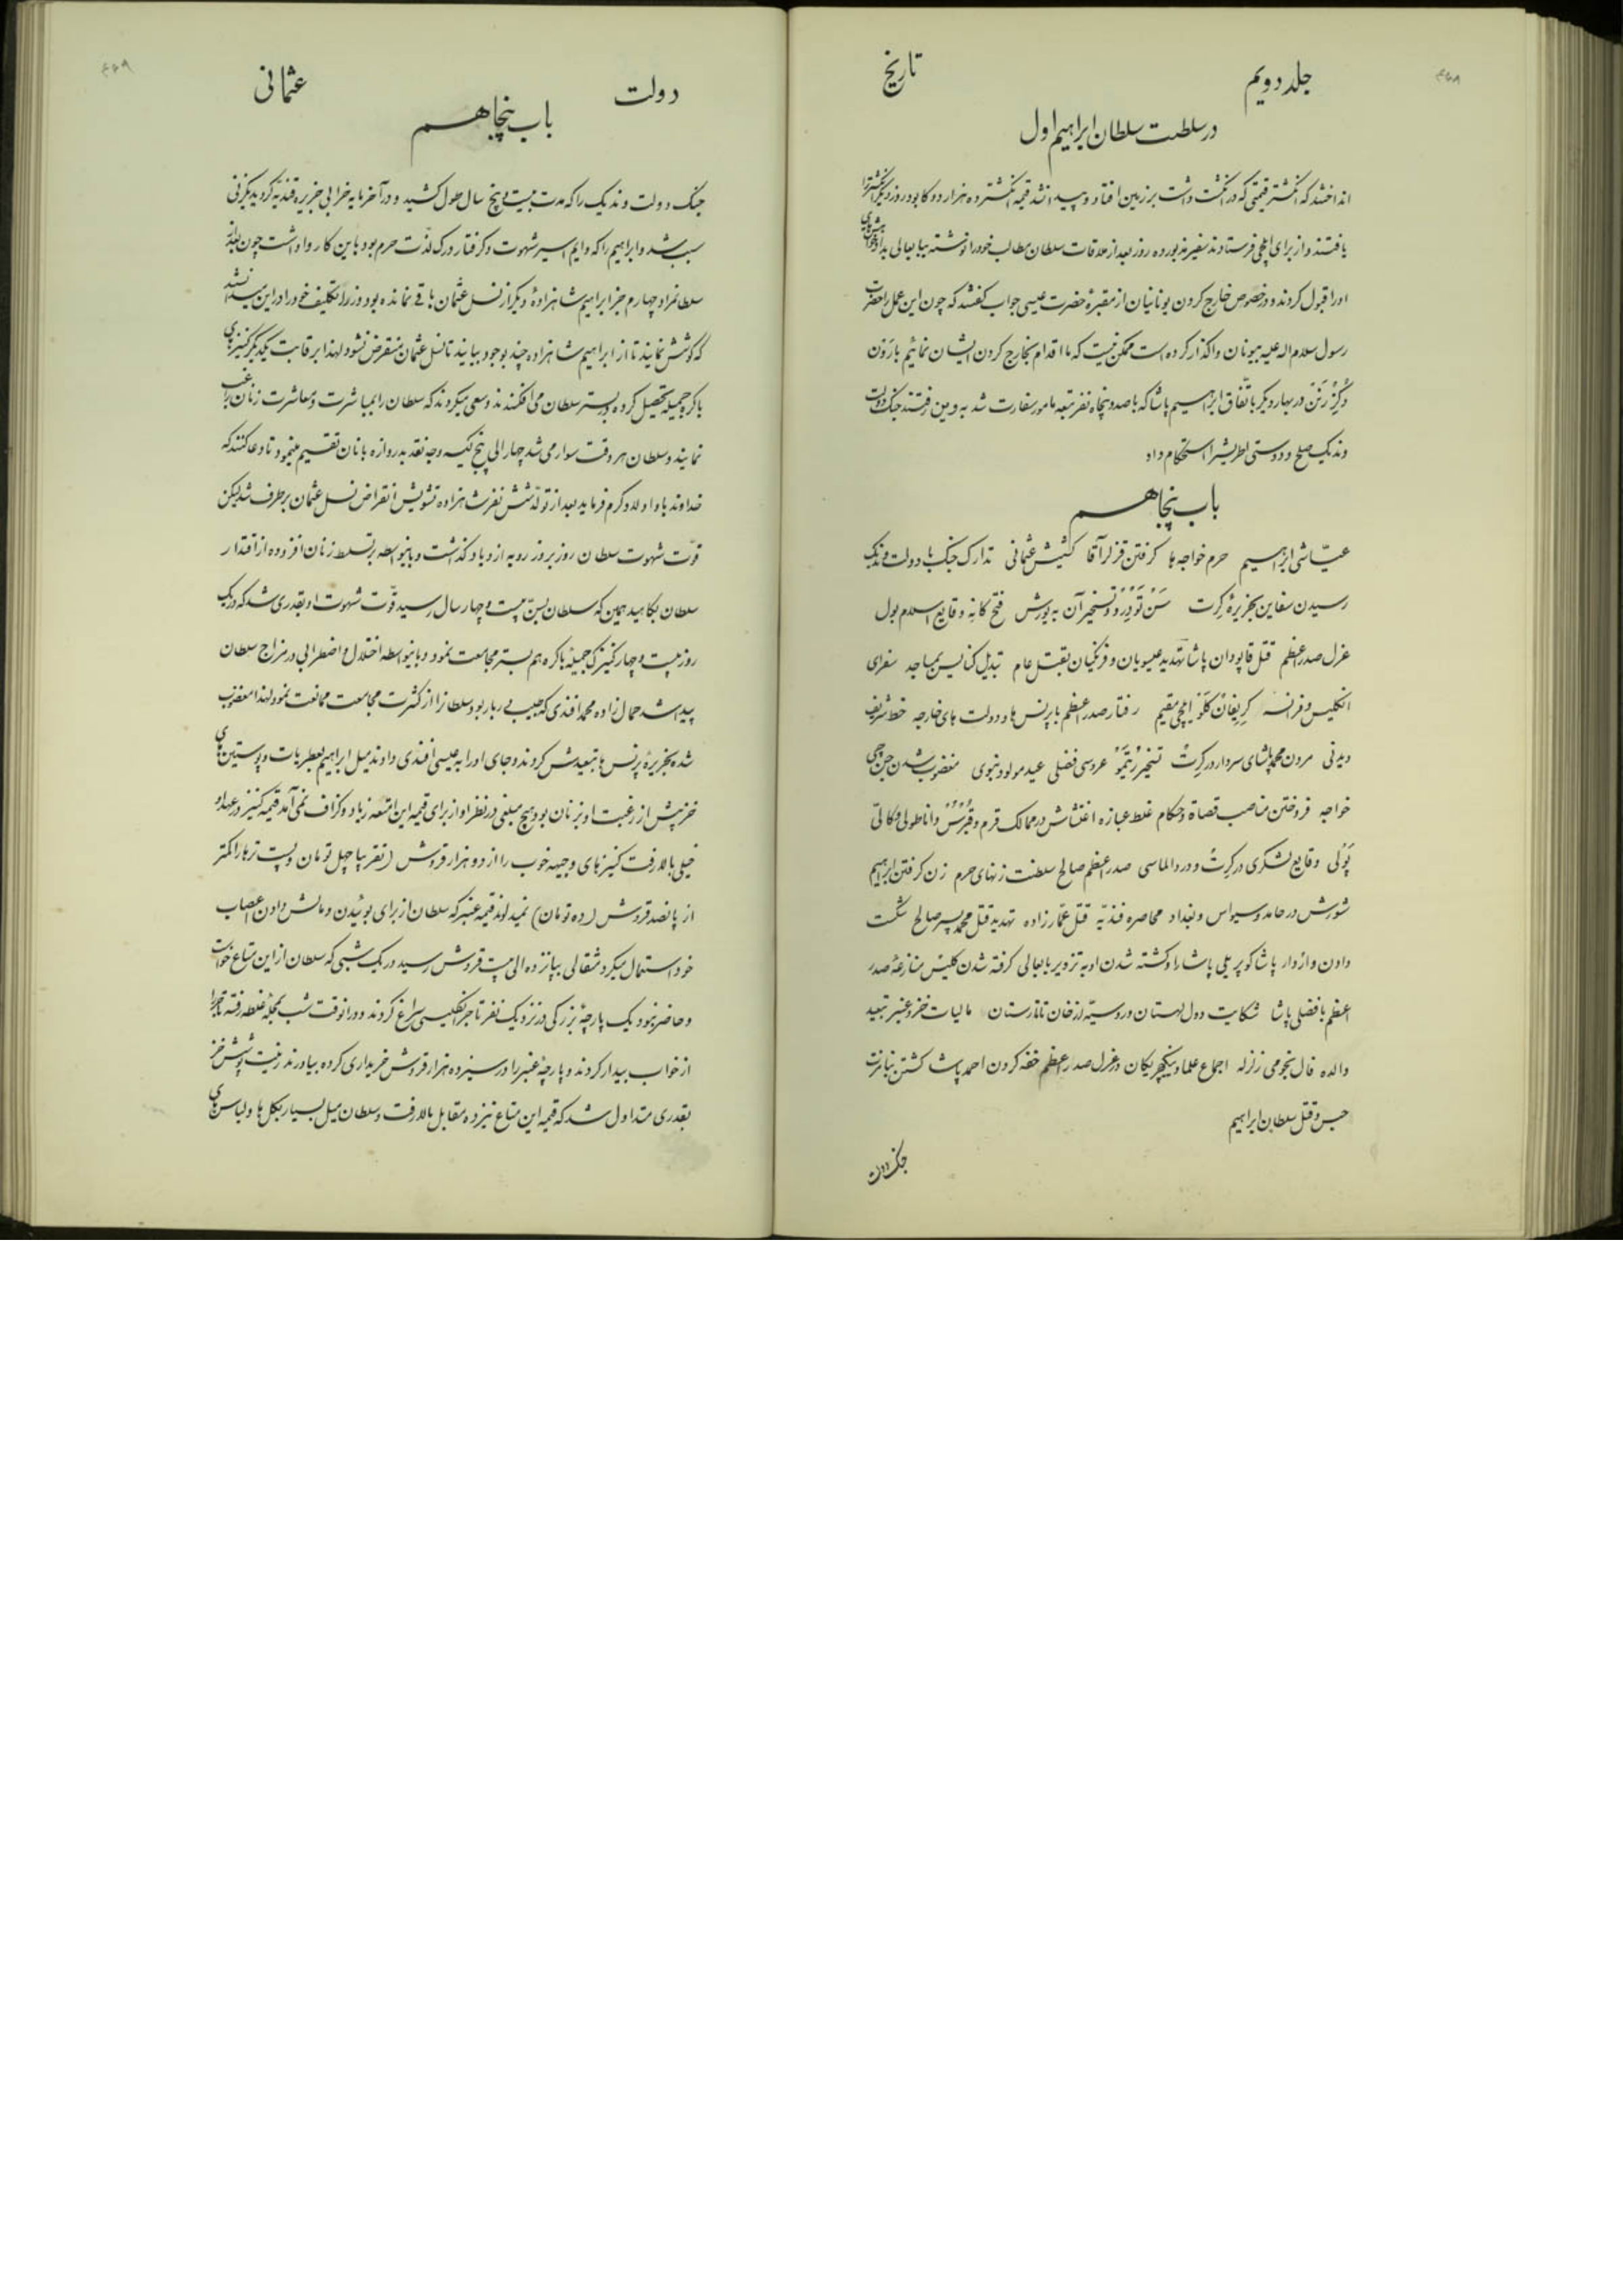 ۴۶۸
جلد دویم
تاریخ
در سلطنت سلطان ابراهیم اول
انداختند که انگشتر قیمتی که در انگشت داشت بر زمین افتاد و پیدا نشد قیمه انگشتر ده هزار دوکا بود روز دیگر انگشتر را
یافتند و از برای ایلچی فرستادند سفیر مزبور ده روز بعد از ملاقات سلطان مطالب خود را نوشته ببابعالی داد
او را قبول کردند و در خصوص خارج کردن یونانیان از مقبرهٔ حضرت عیسی جواب گفتند که چون این عمل را حضرت
رسول سلام اله علیه بیونان واگذار کرده است ممکن نیست که ما اقدام بخارج کردن ایشان نمائیم بارون
در بهار دیگر باتفاق ابراهیم پاشا که با صد و پنجاه نفر تبعه مامور سفارت شد به وین رفتند جنک دولت
وندیک صلح و دوستی اطریش را استحکام داد
باب پنجاهم
عیّاشی ابراهیم حرم خواجه‌ها گرفتن قزلر آقا کشیش عثمانی تدارک جنک با دولت وندیک
رسیدن سفاین بجزیرهٔ کرت سَنْ تَوْدِرُو و تسخیر آن به یورش فتح کانه وقایع اسلامبول
عزل صدر اعظم قتل قاپودان پاشا تهدید عیسویان و فرنگیان بقتل عام تبدیل کنایس بمساجد سفرای
انگلیس و فرانسه ایلچی مقیم رفتار صدر اعظم با پرنس ها و دولت های خارجه خط شریف
دیدنی مردن محمد پاشای سردار در کرت تسخیر رُتِمَوْ عروسی فضلی عید مولود نبوی مغضوب شدن جن جی
خواجه فروختن مناصب قضاة و حکام غلط عبازه اغتشاش در ممالک قرم و قبرس و اناطولی
پَوْلی وقایع لشکری در کرت و در دالماسی صدر اعظم صالح سلطنت زنهای حرم زن گرفتن ابراهیم
شورش در حامد و سیواس و بغداد محاصره قندیّه قتل عمّارزاده تهدید قتل محمد پسر صالح شکست
دادن واردار پاشا کوپریلی پاشا را و کشته شدن او به تزویر بابعالی گرفته شدن کلیس منازعهٔ صدر
اعظم با فضلی پاشا شکایت دول لهستان و روسیّه از خان تاتارستان مالیات خز و عنبر تبعید
والده فال نجومی زلزله اجماع علما و ینگچریکان در عزل صدر اعظم خفه کردن احمد پاشا کشتن
حبس و قتل سلطان ابراهیم
جنک دولت
۴۶۹
دولت
عثمانی
باب پنجاهم
جنک دولت وندیک را که مدت بیست و پنج سال طول کشید و در آخر مایه خرابی جزیره قندیّه گردید یکزنی
سبب شد و ابراهیم را که دایم اسیر شهوت و گرفتار درک لذّت حرم بود باین کار واداشت چون بعد از
سلطانمراد چهارم جز ابراهیم شاهزادهٔ دیگر از نسل عثمان باقی نمانده بود وزرا تکلیف خود را در این میدانستند
که کوشش نمایند تا از ابراهیم شاهزاده چند بوجود بیایند تا نسل عثمان منقرض نشود لهذا برقابت یکدیگر کنیزهای
باکره جمیله تحصیل کرده در بستر سلطان می افکندند و سعی میکردند که سلطان را بمباشرت و معاشرت زنان راغب
نمایند و سلطان هر وقت سوار می شد چهار الی پنج کیسه وجه نقد بدروازه بانان تقسیم مینمود تا دعا کنند که
خداوند باو اولاد کرم فرماید بعد از تولّد شش نفر شاهزاده تشویش انقراض نسل عثمان برطرف شد لیکن
قوّت شهوت سلطان روز بروز رو به ازدیاد گذاشت و باینواسطه بر تسلط زنان افزوده از اقتدار
سلطان بکاهید همین که سلطان بسنّ بیست و چهار سال رسید قوّت شهوت او بقدری شد که در یک
روز بیست و چهار کنیزک جمیلهٔ باکره هم بستر مجامعت نمود و باینواسطه اختلال و اضطرابی در مزاج سلطان
پیدا شد حمال زاده محمد افندی که طبیب دربار بود سلطان را از کثرت مجامعت ممانعت نمود لهذا مغضوب
شده بجزیرهٔ پرنس ها تبعیدش کردند و جای او را به عیسی افندی دادند میل ابراهیم بعطریات و پوستین های
خز پیش از رغبت او بزنان بود هیچ مبلغی در نظر او از برای قیمه این امتعه زیاد و گزاف نمی آمد قیمه کنیز در عهد او
خیلی بالا رفت کنیزهای وجیهه خوب را از دو هزار قروش (تقریبا چهل تومان) و پست ترها را کمتر
از پانصد قروش (ده تومان) نمیدادند قیمه عنبر که سلطان از برای بوئیدن و مالش دادن اعصاب
خود استعمال میکرد مثقالی بپانزده الی بیست قروش رسید در یک شبی که سلطان از این متاع خواست
و حاضر نبود یک پارچهٔ بزرگی در نزد یک نفر تاجر انگلیسی سراغ کردند و در انوقت شب بمحلّهٔ غلطه رفته تاجر را
از خواب بیدار کردند و پارچهٔ عنبر را در سیزده هزار قروش خریداری کرده بیاوردند زینت و پوشش خز
بقدری متداول شد که قیمه این متاع نیز ده مقابل بالا رفت و سلطان میل بسیار بگل ها و لباس های